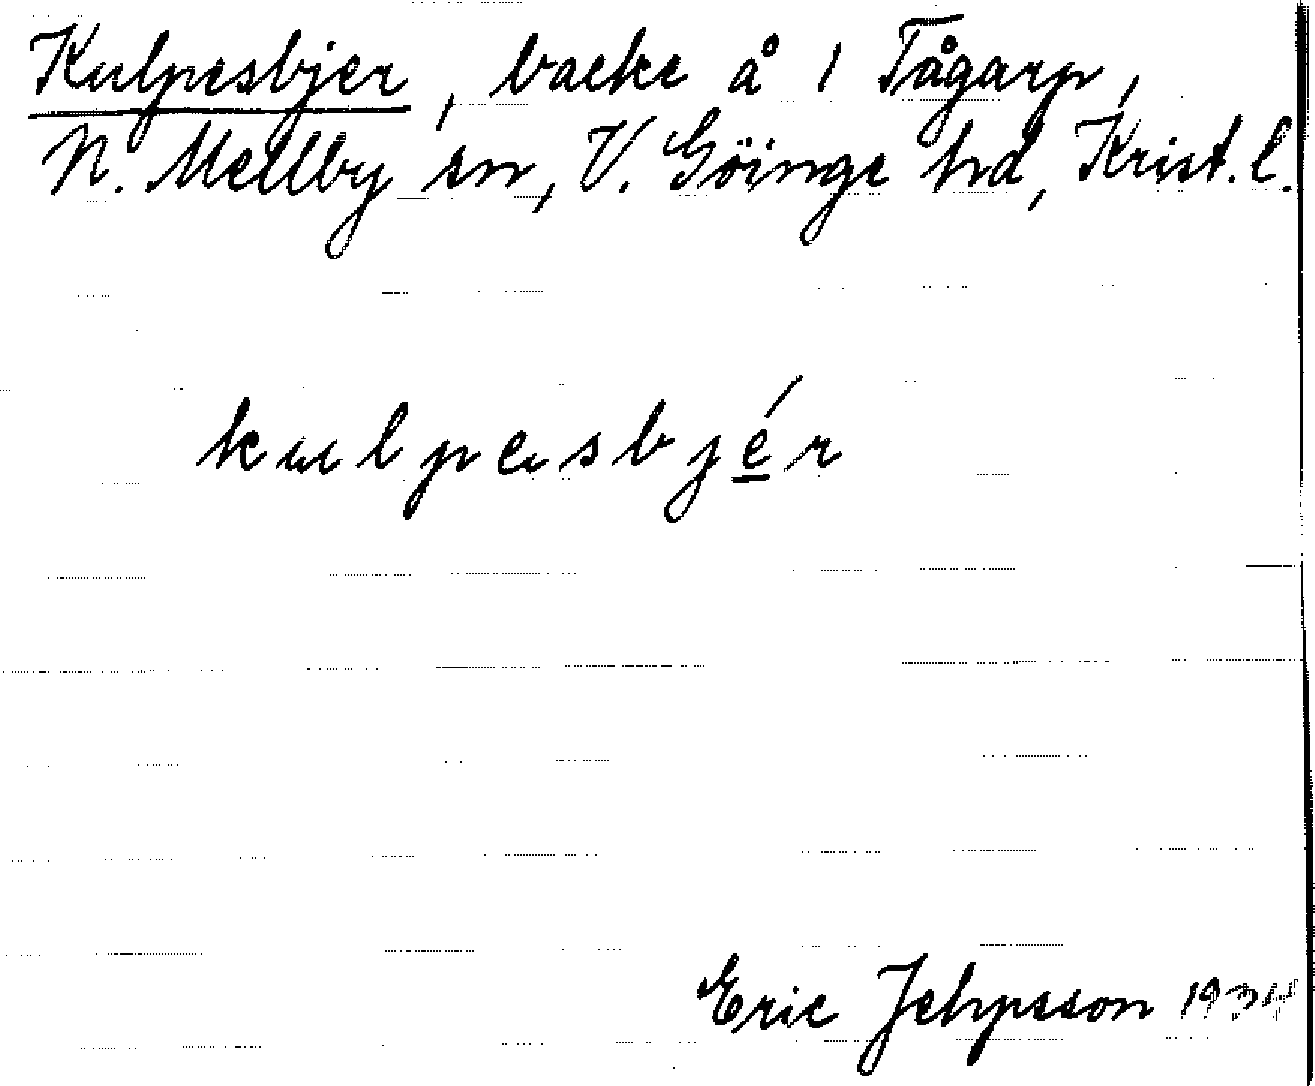 Kulpesbjer, backe å 1 Tågarp,
N. Mellby sn, V. Göinge hd, Krist. l.
kulpesbjér
Eric Jeppsson 1934